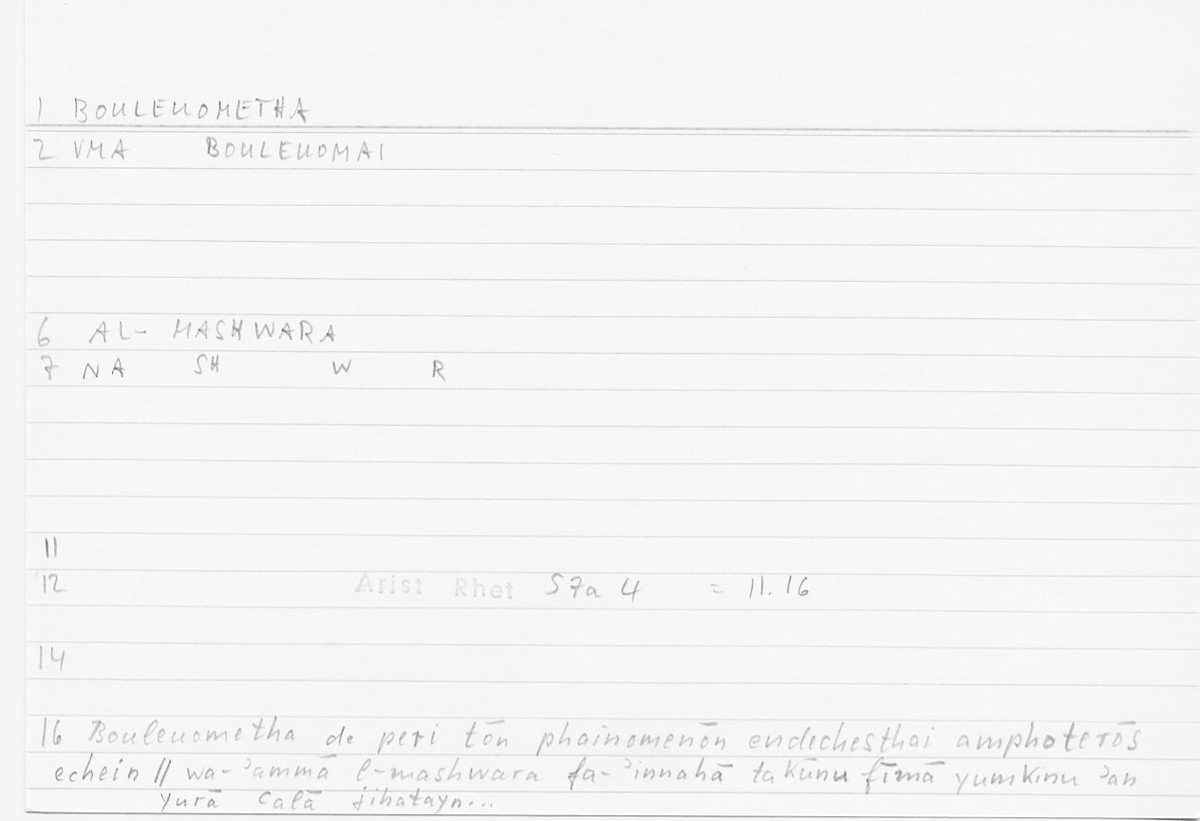 1 BOULEUOMETHA
2 VMA BOULEUOMAI
6 AL- MASHWARA
7 NA SH W R
11
12 Arist Rhet 57a 4 = 11.16
14
16 Bouleuometha de peri tōn phainomenōn endechesthai amphoterōs
echein // wa-ʾammā l-mashwara fa-ʾinnahā takūnu fīmā yumkinu ʾan
yurā calā jihatayn...